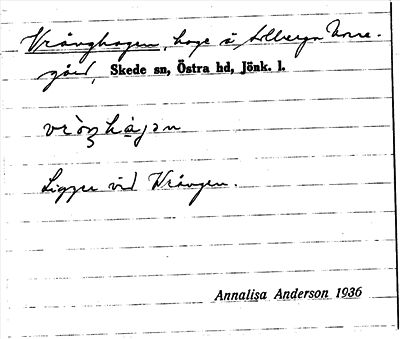 Vrånghagen, hage å Solberga Norre-
gård, Skede sn, Östra hd, Jönk. l.
vròŋhàgən
Ligger vid Vrången.
Annalisa Anderson 1936